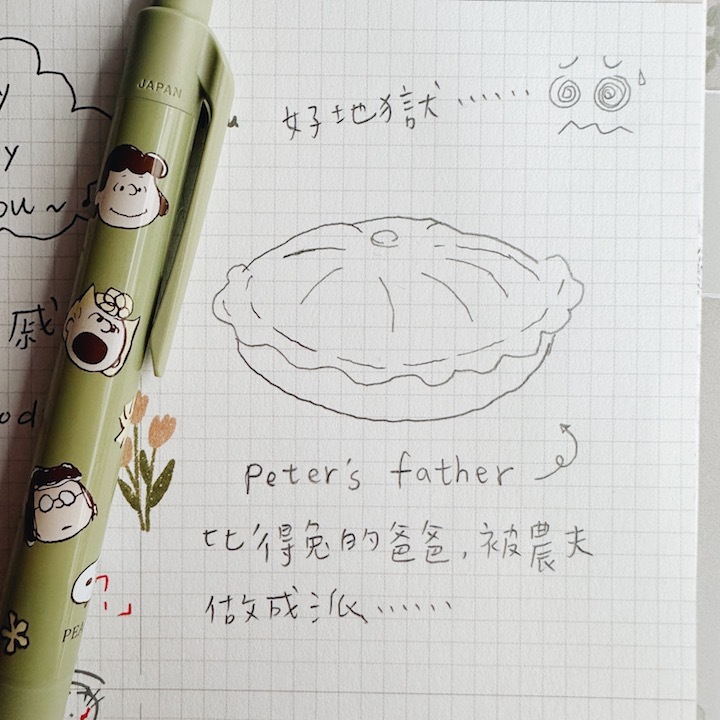 JAPAN
y
y
ou~
戚
od
好地獄……
Peter's father
比得兔的爸爸,被農夫
做成派……
PEA